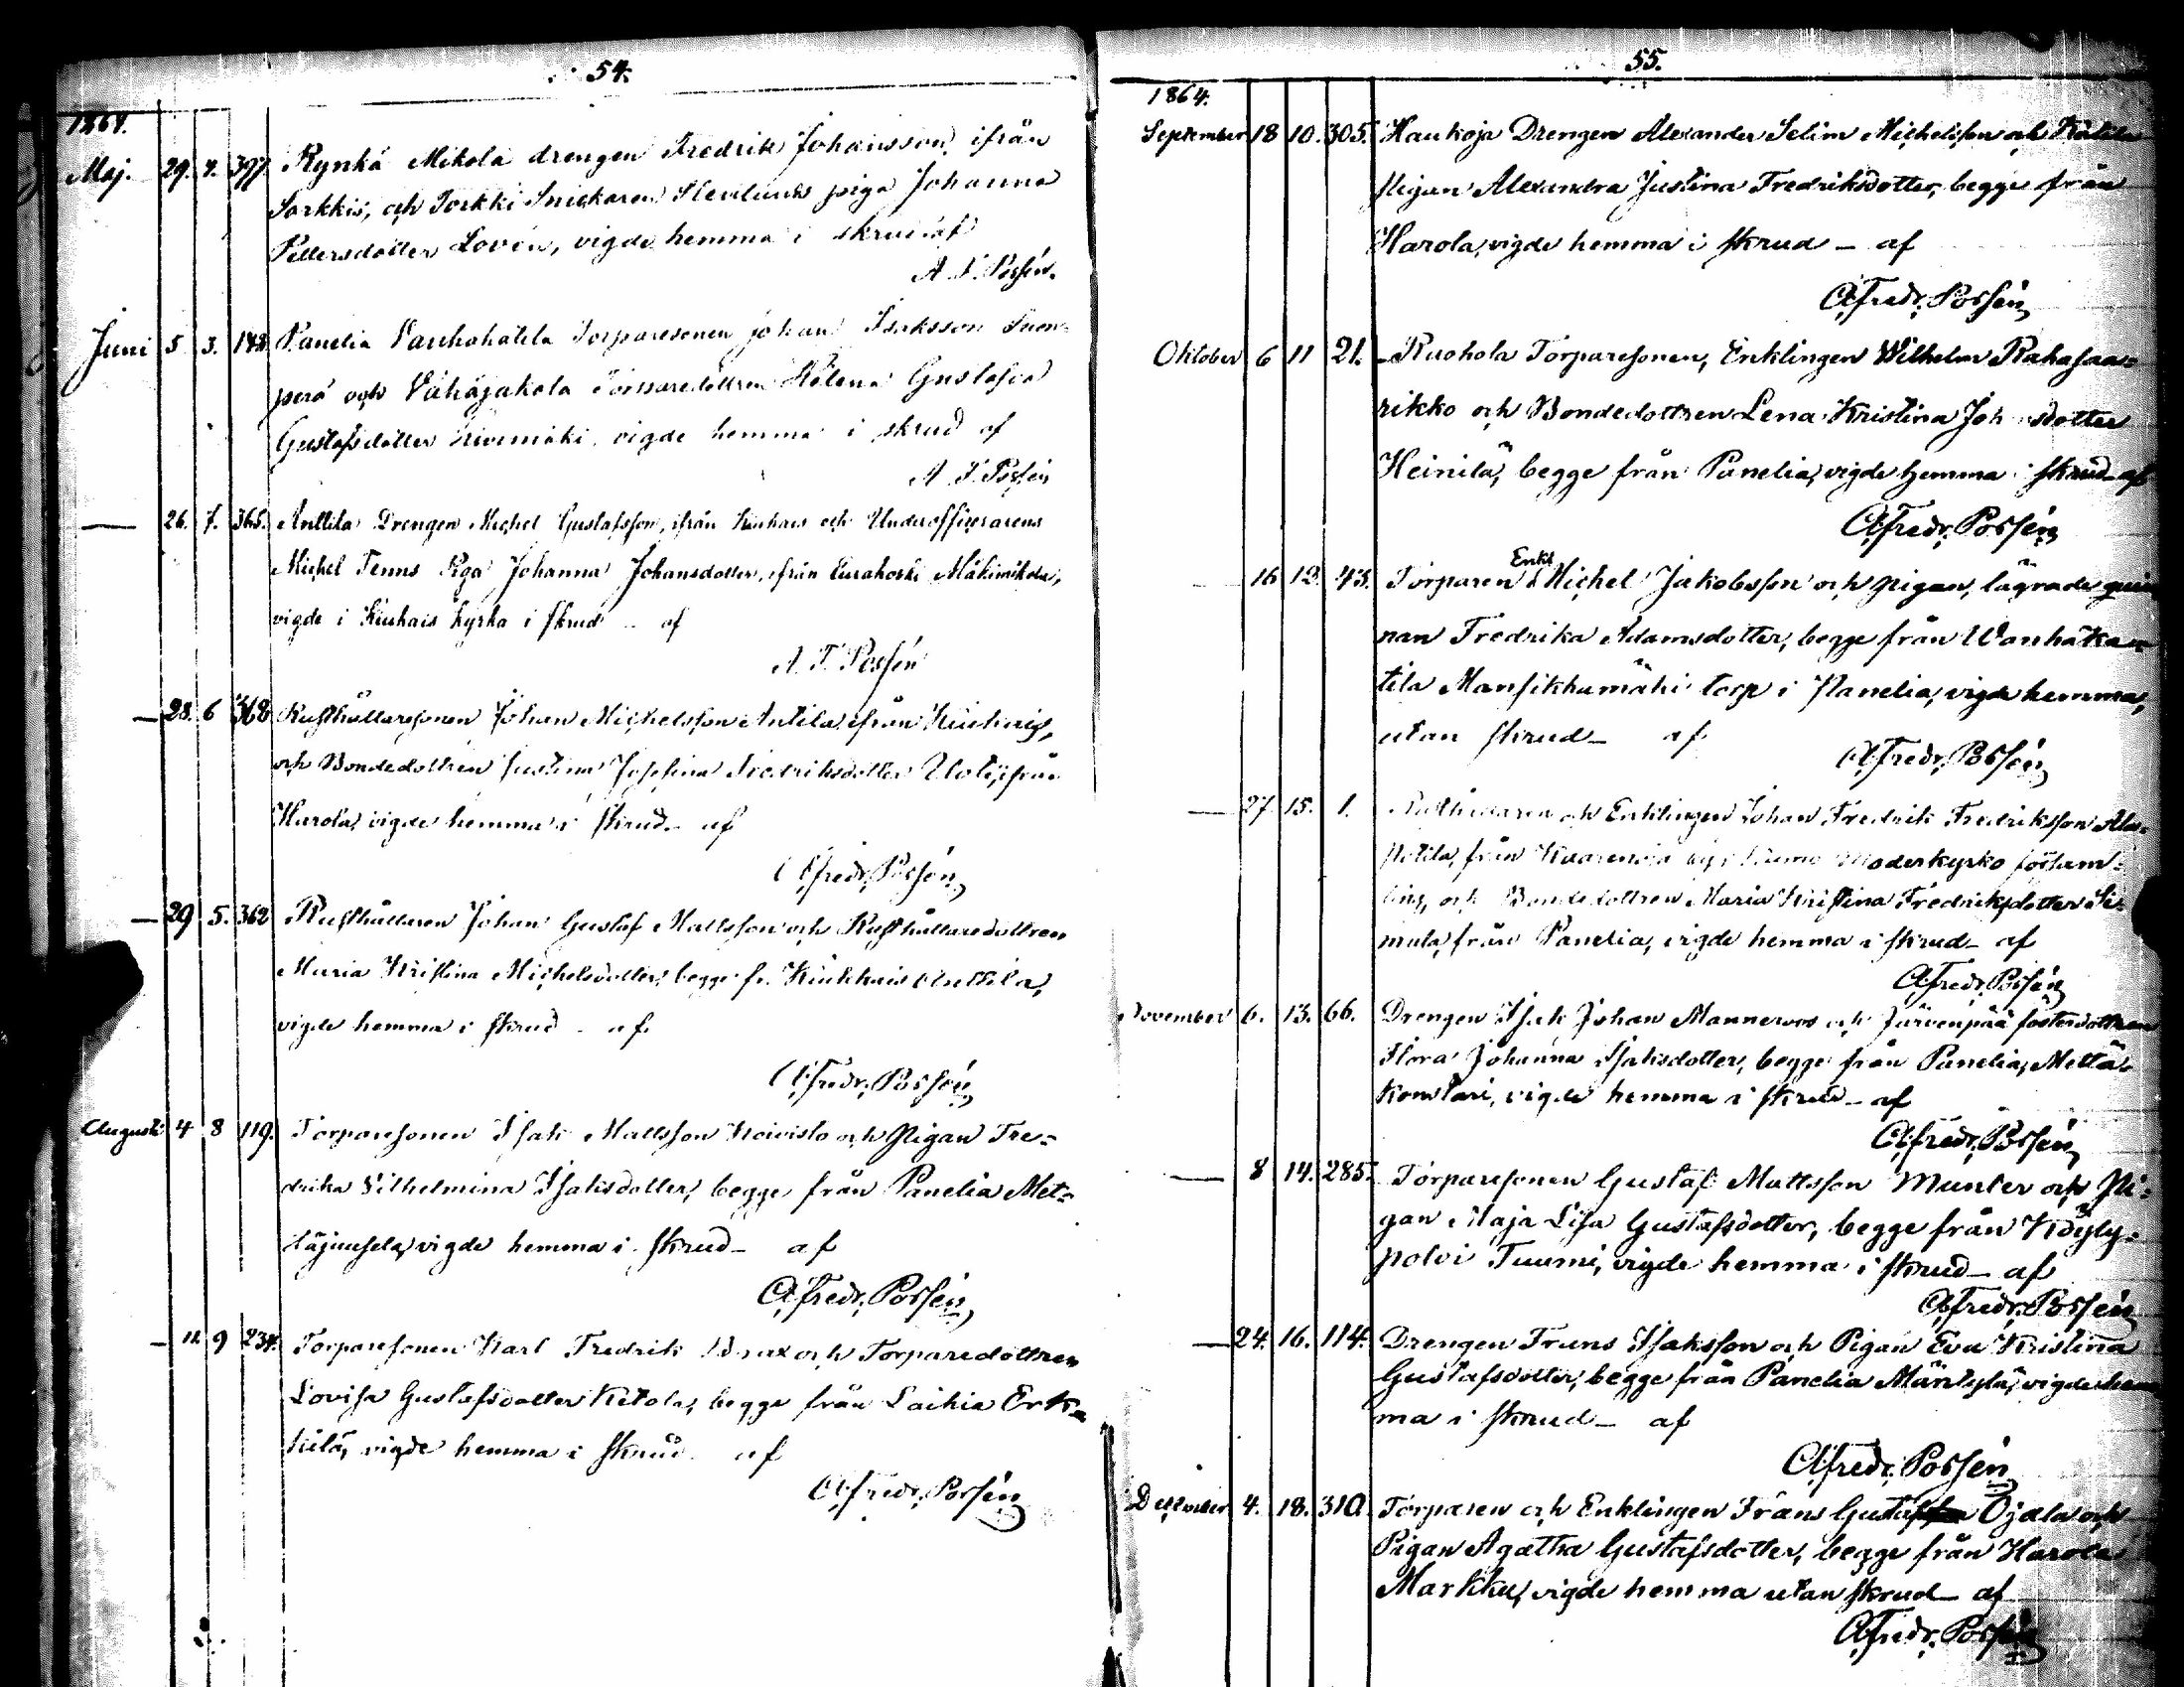 54.
1864.
Maj. 29. 4. 397. Rynkä Mikola drengen Fredrik Johansson, ifrån
Sorkkis, och Torkki Snickaren piga Johanna
Pettersdotter Lovén, vigde hemma i skrud af
A. F. Possén.
Juni 5 3. 148 Panelia Vanhakatila Torparesonen Johan Isaksson
perä och Vähäjakola Torparedottren Helena Gustafva
Gustafsdotter vigde hemma i skrud af
A. F. Possén
— 26. 7. 365. Anttila Drengen Michel Gustafsson, ifrån Kiukais och Underofficerarens
Michel Tenns Piga Johanna Johansdotter, ifrån Eurakoski Mäkimikola,
vigde i Kiukais kyrka i skrud - af
A. F. Possén
— 28. 6 368 Rusthållaresonen Johan Michelsson Antila, ifrån Kiukais,
och Bondedottren Justina Josefina Fredriksdotter Uoti, ifrån
Harola, vigde hemma i skrud - af
Alfredr. Possén
— 29 5. 362 Rusthållaren Johan Gustaf Mattsson och Rusthållaredottren
Maria Kristina Michelsdotter, begge fr. Kiukkais Anttila,
vigde hemma i skrud - af
Alfredr. Possén
Augusti 4 8 119. Torparesonen Isak Mattsson Koivisto och Pigan Fre=
drika Vilhelmina Isaksdotter, begge från Panelia Met=
täjuusela, vigde hemma i skrud - af
Alfredr. Possén
— 11. 9 234. Torparesonen Karl Fredrik Brax och Torparedottren
Lovisa Gustafsdotter Ketola, begge från Laihia Erk=
kilä, vigde hemma i skrud. af
Alfredr. Possén
55.
1864.
September 18 10. 305. Haukoja Drengen Alexander Selim Michelsson och
Pigan Alexandra Justina Fredriksdotter, begge från
Harola, vigde hemma i skrud - af
Alfredr. Possén
Oktober 6 11 21. Ruohola Torparesonen, Enklingen Wilhelm Rahasaa=
rikko och Bondedottren Lena Kristina Joh sdotter
Heinilä, begge från Panelia, vigde hemma i skrud - af
Alfredr. Possén
Enkl.
— 16 12. 43. Torparen Michel Jakobsson och pigan, lägrade qvin
nan Fredrika Adamsdotter, begge från Wanhaka=
tila Mansikkamäki torp i Panelia, vigde hemma,
utan skrud - af
Alfredr. Possén
— 27 15. 1. Rusthållaren och Enklingen Johan Fredrik Fredriksson Ala=
Potila, från Moderkyrko försam=
ling, och Bondedottren Maria Kristina Fredriksdotter Si=
mula, från Panelia, vigde hemma i skrud - af
Alfredr. Possén
November 6. 13. 66. Drengen Isak Johan Manneroos och Järvenpää fosterdottren
Flora Johanna Isaksdotter, begge från Panelia, Mettä=
konstari, vigde hemma i skrud - af
Alfredr. Possén
— 8 14. 285. Torparesonen Gustaf Mattsson Munter och Pi=
gan Maja Lisa Gustafsdotter, begge från Köyly=
polvi Tuumi, vigde hemma i skrud - af
Alfredr. Possén
— 24. 16. 114. Drengen Frans Isaksson och Pigan Eva Kristina
Gustafsdotter, begge från Panelia Mäntylä, vigde hem
ma i skrud - af
Alfredr. Possén
December 4. 18. 310. Torparen och Enklingen Frans Gustaf Ojala och
Pigan Agatha Gustafsdotter, begge från Harola
Markku, vigde hemma utan skrud - af
Alfredr. Possén